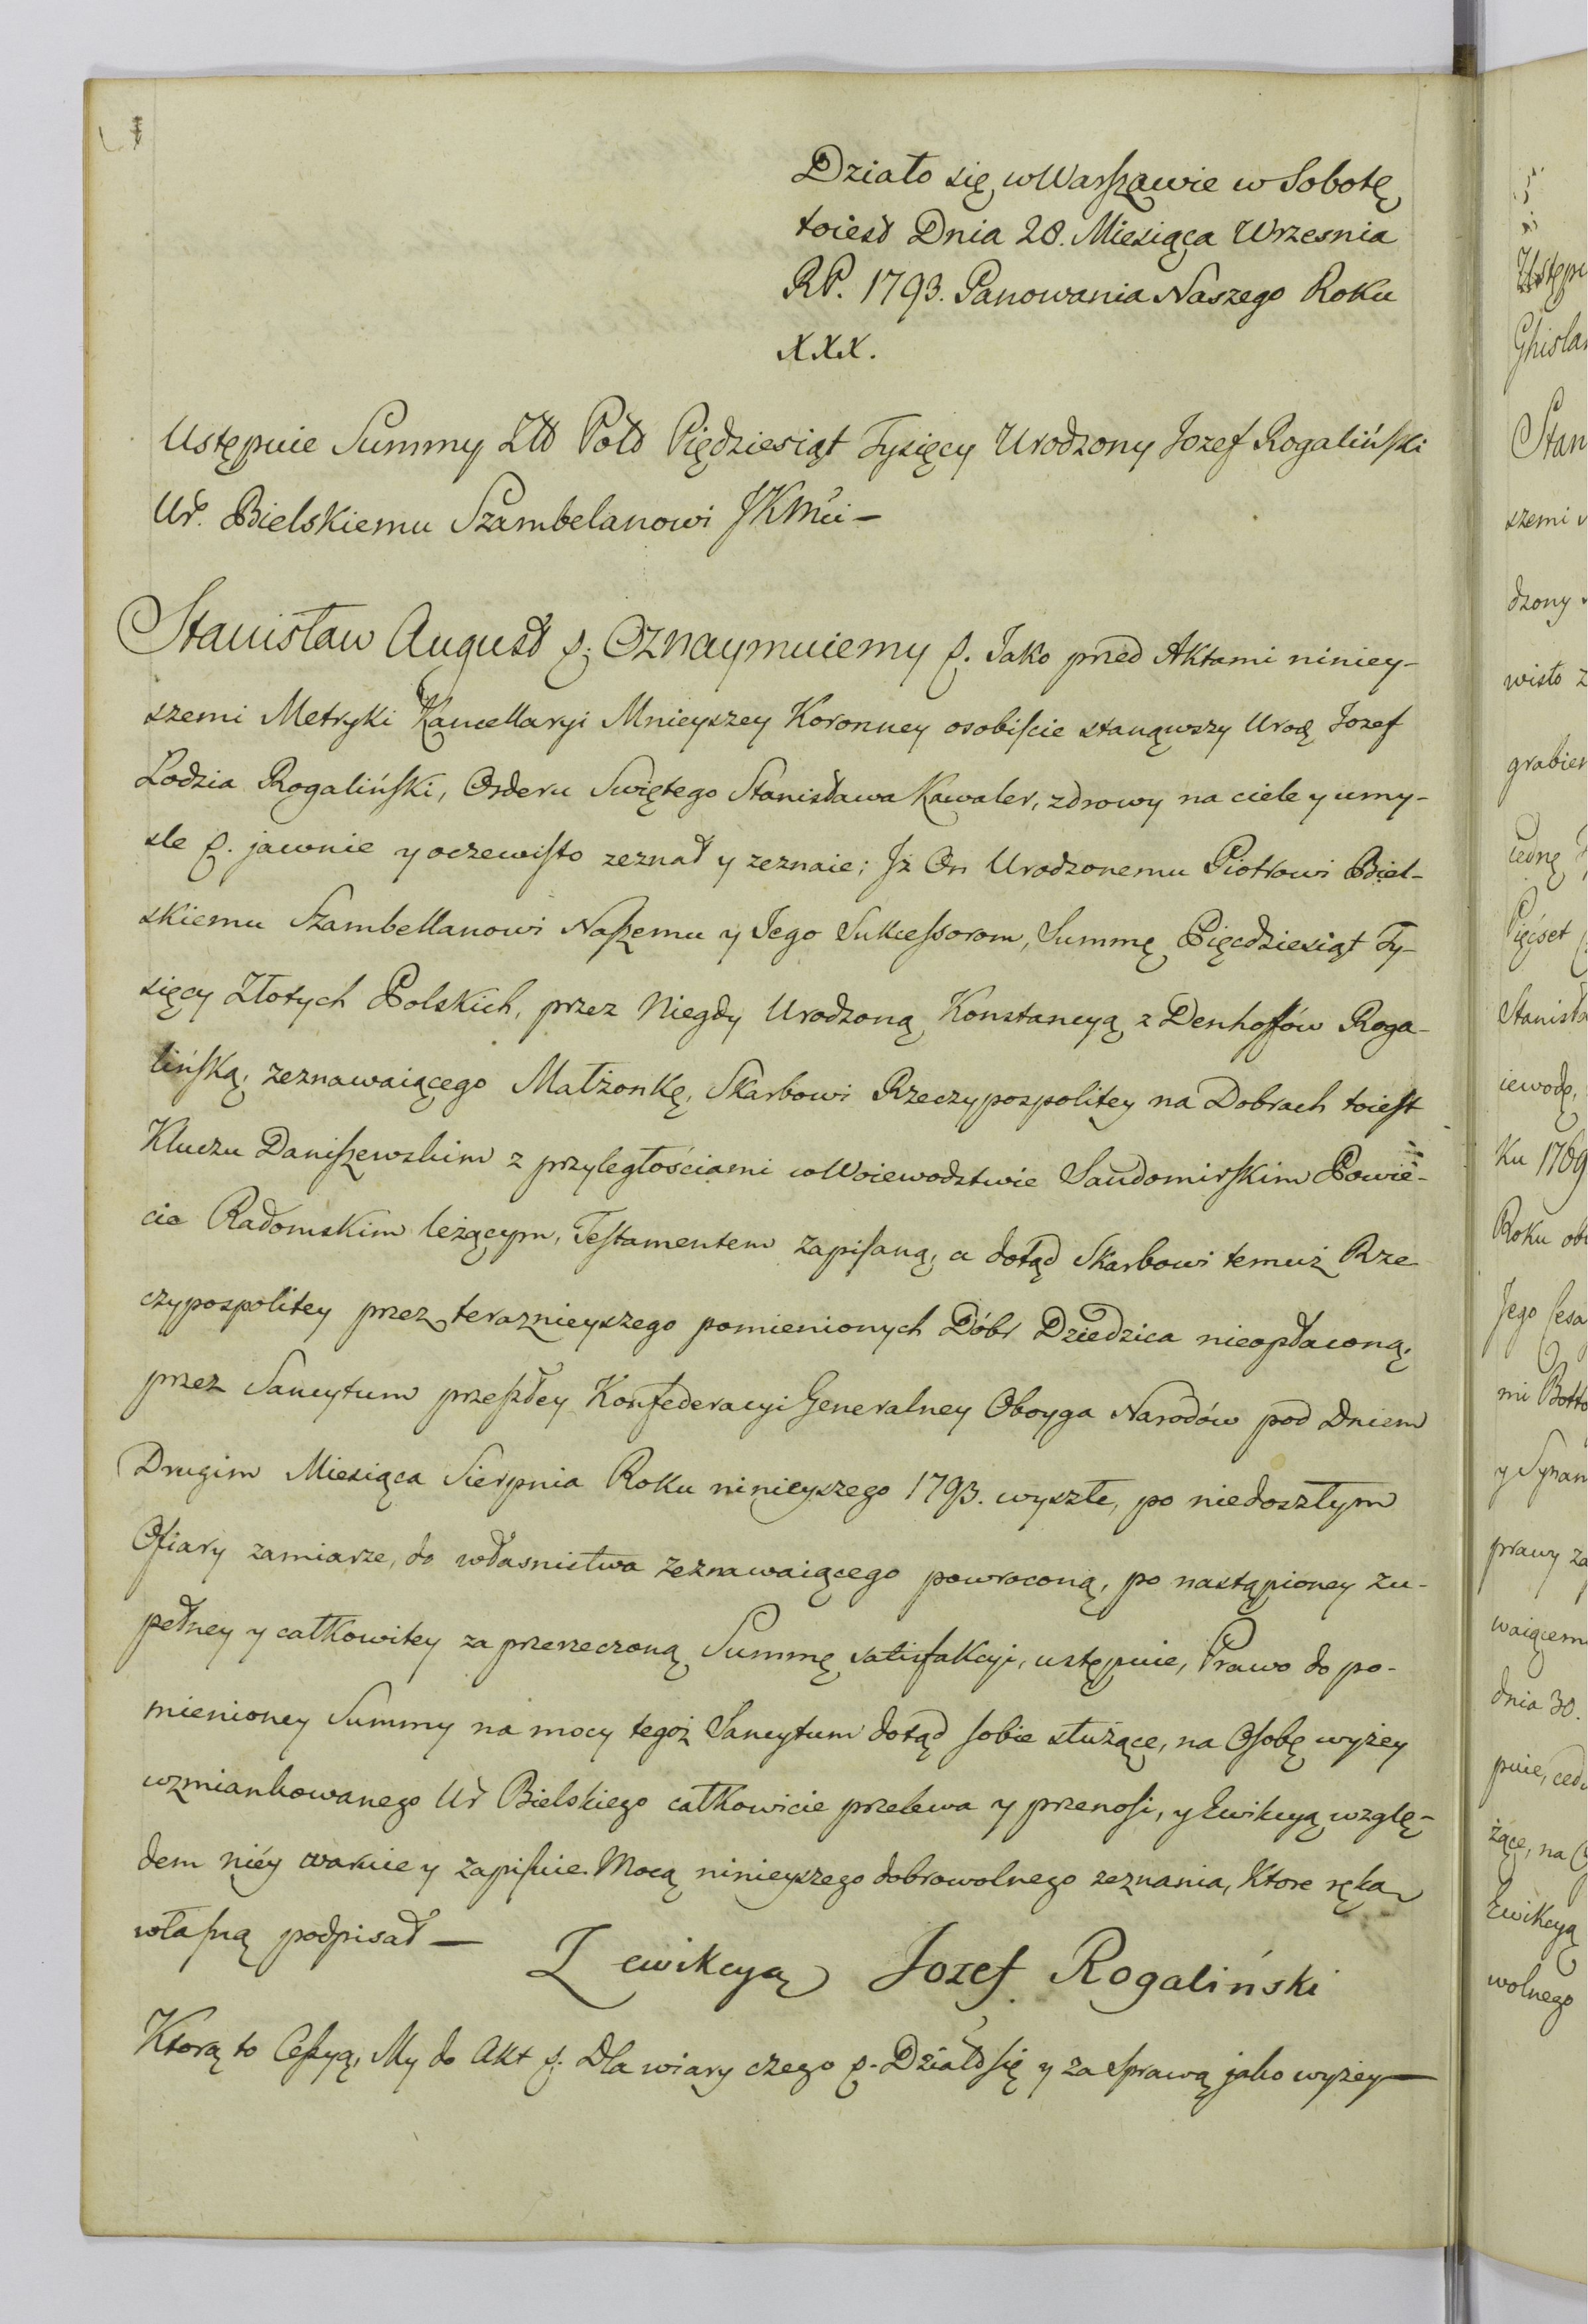 Działo się w Warszawie w Sobotę
toiest Dnia 28. Miesiąca Wrzesnia
RP. 1793. Panowania Naszego Roku
XXX.
Ustępuie Summy Złł Poll Pięździesiąt Tysięcy Urodzony Jozef Rogaliński
Ur. Bielskiemu Szambelanowi JKMci —
Stanisław August &. Oznaymuiemy &. Jako przed Aktami niniey-
szemi Metryki Kancellaryi Mnieyszey Koronney osobiscie stanąwszy Urodz Jozef
Lodzia Rogaliński, Orderu Swiętego Stanisława Kawaler, zdrowy na ciele y umy-
sle &. jawnie y oczewisto zeznał y zeznaie; Jż On Urodzonemu Piotrowi Biel-
skiemu Szambellanowi Naszemu y Jego Sukcessorom, Summę Pięcdziesiąt Ty-
sięcy Złotych Polskich, przez Niegdy Urodzoną Konstancyą z Denhoffów Roga-
lińską, zeznawaiącego Małżonkę, Skarbowi Rzeczypospolitey na Dobrach toiest
Kluczu Daniszewskim z przyległościami w Woiewodztwie Sandomirskim Powie-
cie Radomskim leżącym, Testamentem zapisaną, a dotąd Skarbowi temuż Rze-
czypospolitey przez teraznieyszego pomienionych Dóbr Dziedzica nieopłaconą,
przez Sancytum przeszłey Konfederacyi Generalney Oboyga Narodów pod Dniem
Drugim Miesiąca Sierpnia Roku ninieyszego 1793. wyszłe, po niedoszłym
Ofiary zamiarze, do własnistwa zeznawaiącego powroconą, po nastąpioney zu-
pełney y całkowitey za przerzeczoną Summę satisfakcyi, ustępuie, Prawo do po-
mienioney Summy na mocy tegoż Sancytum dotąd sobie służące, na Osobę wyżey
wzmiankowanego Ur Bielskiego całkowicie przelewa y przenosi, y Ewikcyą wzglę-
dem niéy waruie y zapisuie. Mocą ninieyszego dobrowolnego zeznania, Ktore ręką
własną podpisał — Z ewikcyą Jozef Rogaliński
Ktorą to Cessyą, My do Akt &. Dla wiary czego &. Działo się y za sprawą jako wyżey —
Ustępu
Ghisla
Stan
szemi
dzony
wisto z
grabie
iednę
Pięćset
Stanisła
iewodę,
Ku 1769
Roku
Jego
mi Botto
y Synan
prawy za
waiącem
dnia 30.
puie, ced
żące, na
Ewikcyą
wolnego